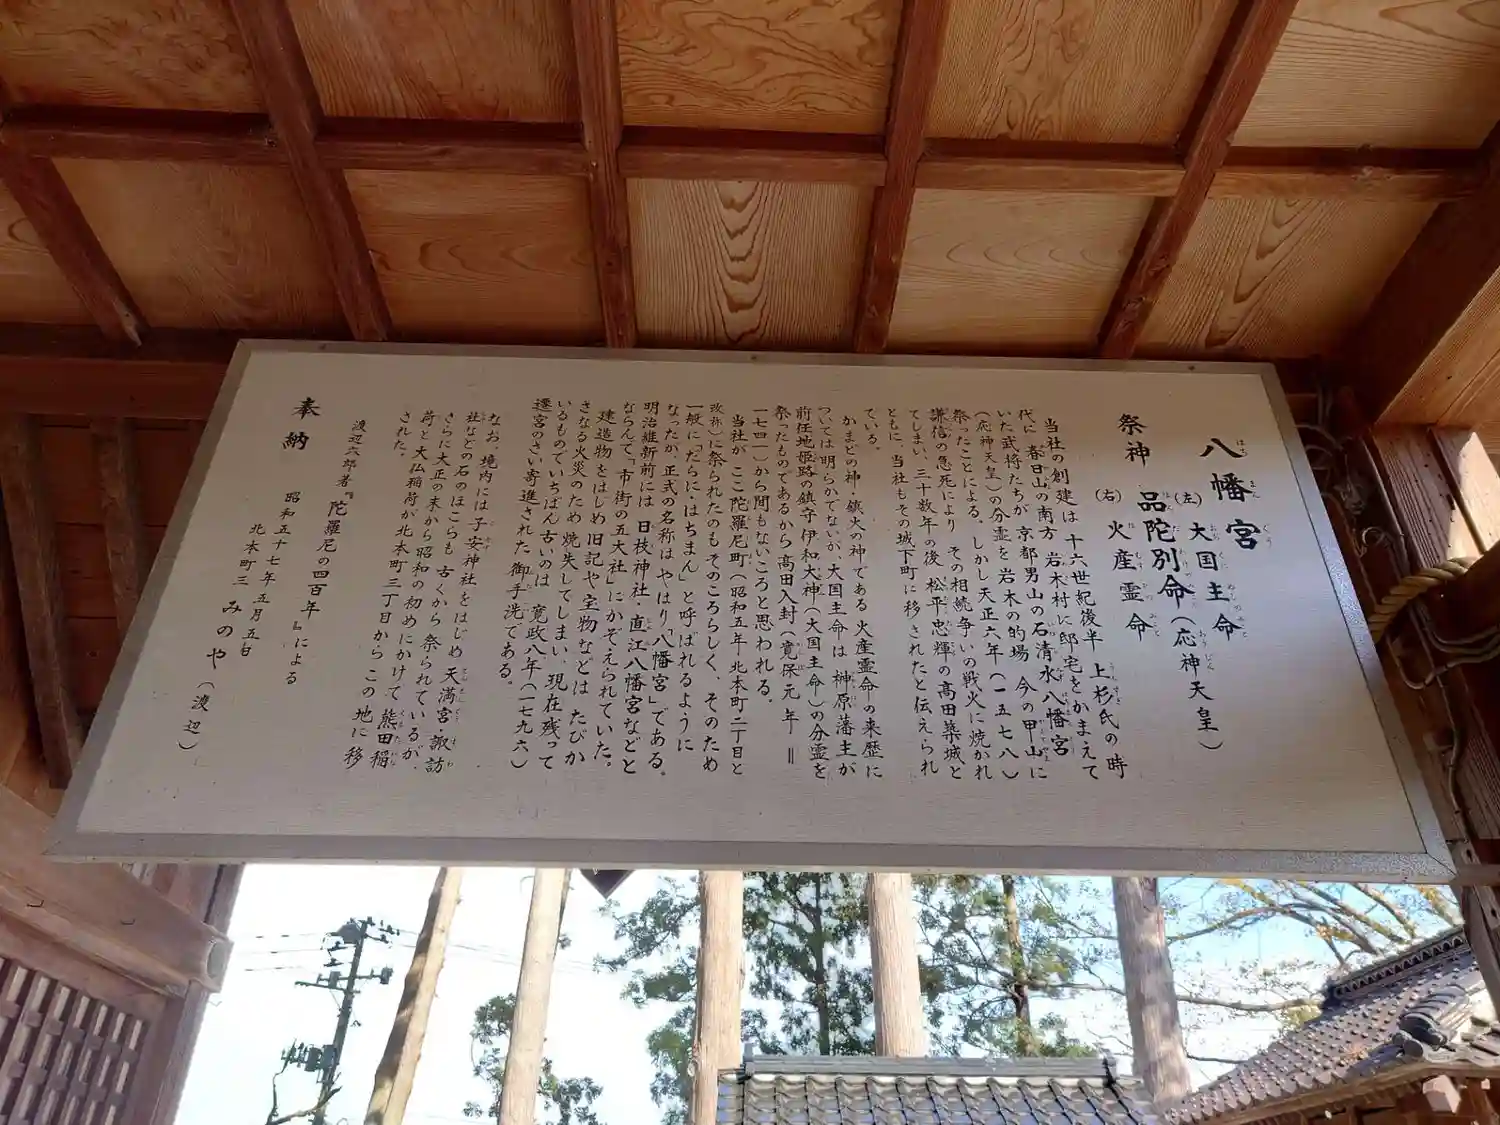 八幡宮
祭神 品陀別命(応神天皇)
(左)大国主命
(右)火産霊命
当社の創建は十六世紀後半 上杉氏の時
代に 春日山の南方 岩木村に邸宅をかまえて
いた武将たちが 京都男山の石清水八幡宮
(応神天皇)の分霊を岩木の的場 今の甲山に
祭ったことによる。しかし天正六年(一五七八)
謙信の急死により その相続争いの戦火に焼かれ
てしまい、三十数年の後 松平忠輝の高田築城と
ともに、当社もその城下町に移されたと伝えられ
ている。
かまどの神・鎮火の神である 火産霊命の来歴に
ついては明らかでないが、大国主命は 榊原藩主が
前任地姫路の鎮守 伊和大神(大国主命)の分霊を
祭ったものであるから 高田入封(寛保元年=
一七四一)から間もないころと思われる。
当社が ここ陀羅尼町(昭和五年 北本町二丁目と
改称)に祭られたのもそのころらしく、そのため
一般に「だらに・はちまん」と呼ばれるように
なったが、正式の名称はやはり「八幡宮」である。
明治維新前には 日枝神社・直江八幡宮などと
ならんで、「市街の五大社」にかぞえられていた。
建造物をはじめ 旧記や宝物などは たびか
さなる火災のため 焼失してしまい、現在残って
いるものでいちばん古いのは 寛政八年(一七九六)
遷宮のさい寄進された 御手洗である。
なお、境内には 子安神社をはじめ 天満宮・諏訪
社などの石のほこらも 古くから 祭られているが、
さらに大正の末から昭和の初めにかけて 熊田稲
荷と大仏稲荷が 北本町三丁目からこの地に移
された。
渡辺六郎著『陀羅尼の四百年』による
昭和五十七年五月五日
奉納 北本町三 みのや(渡辺)